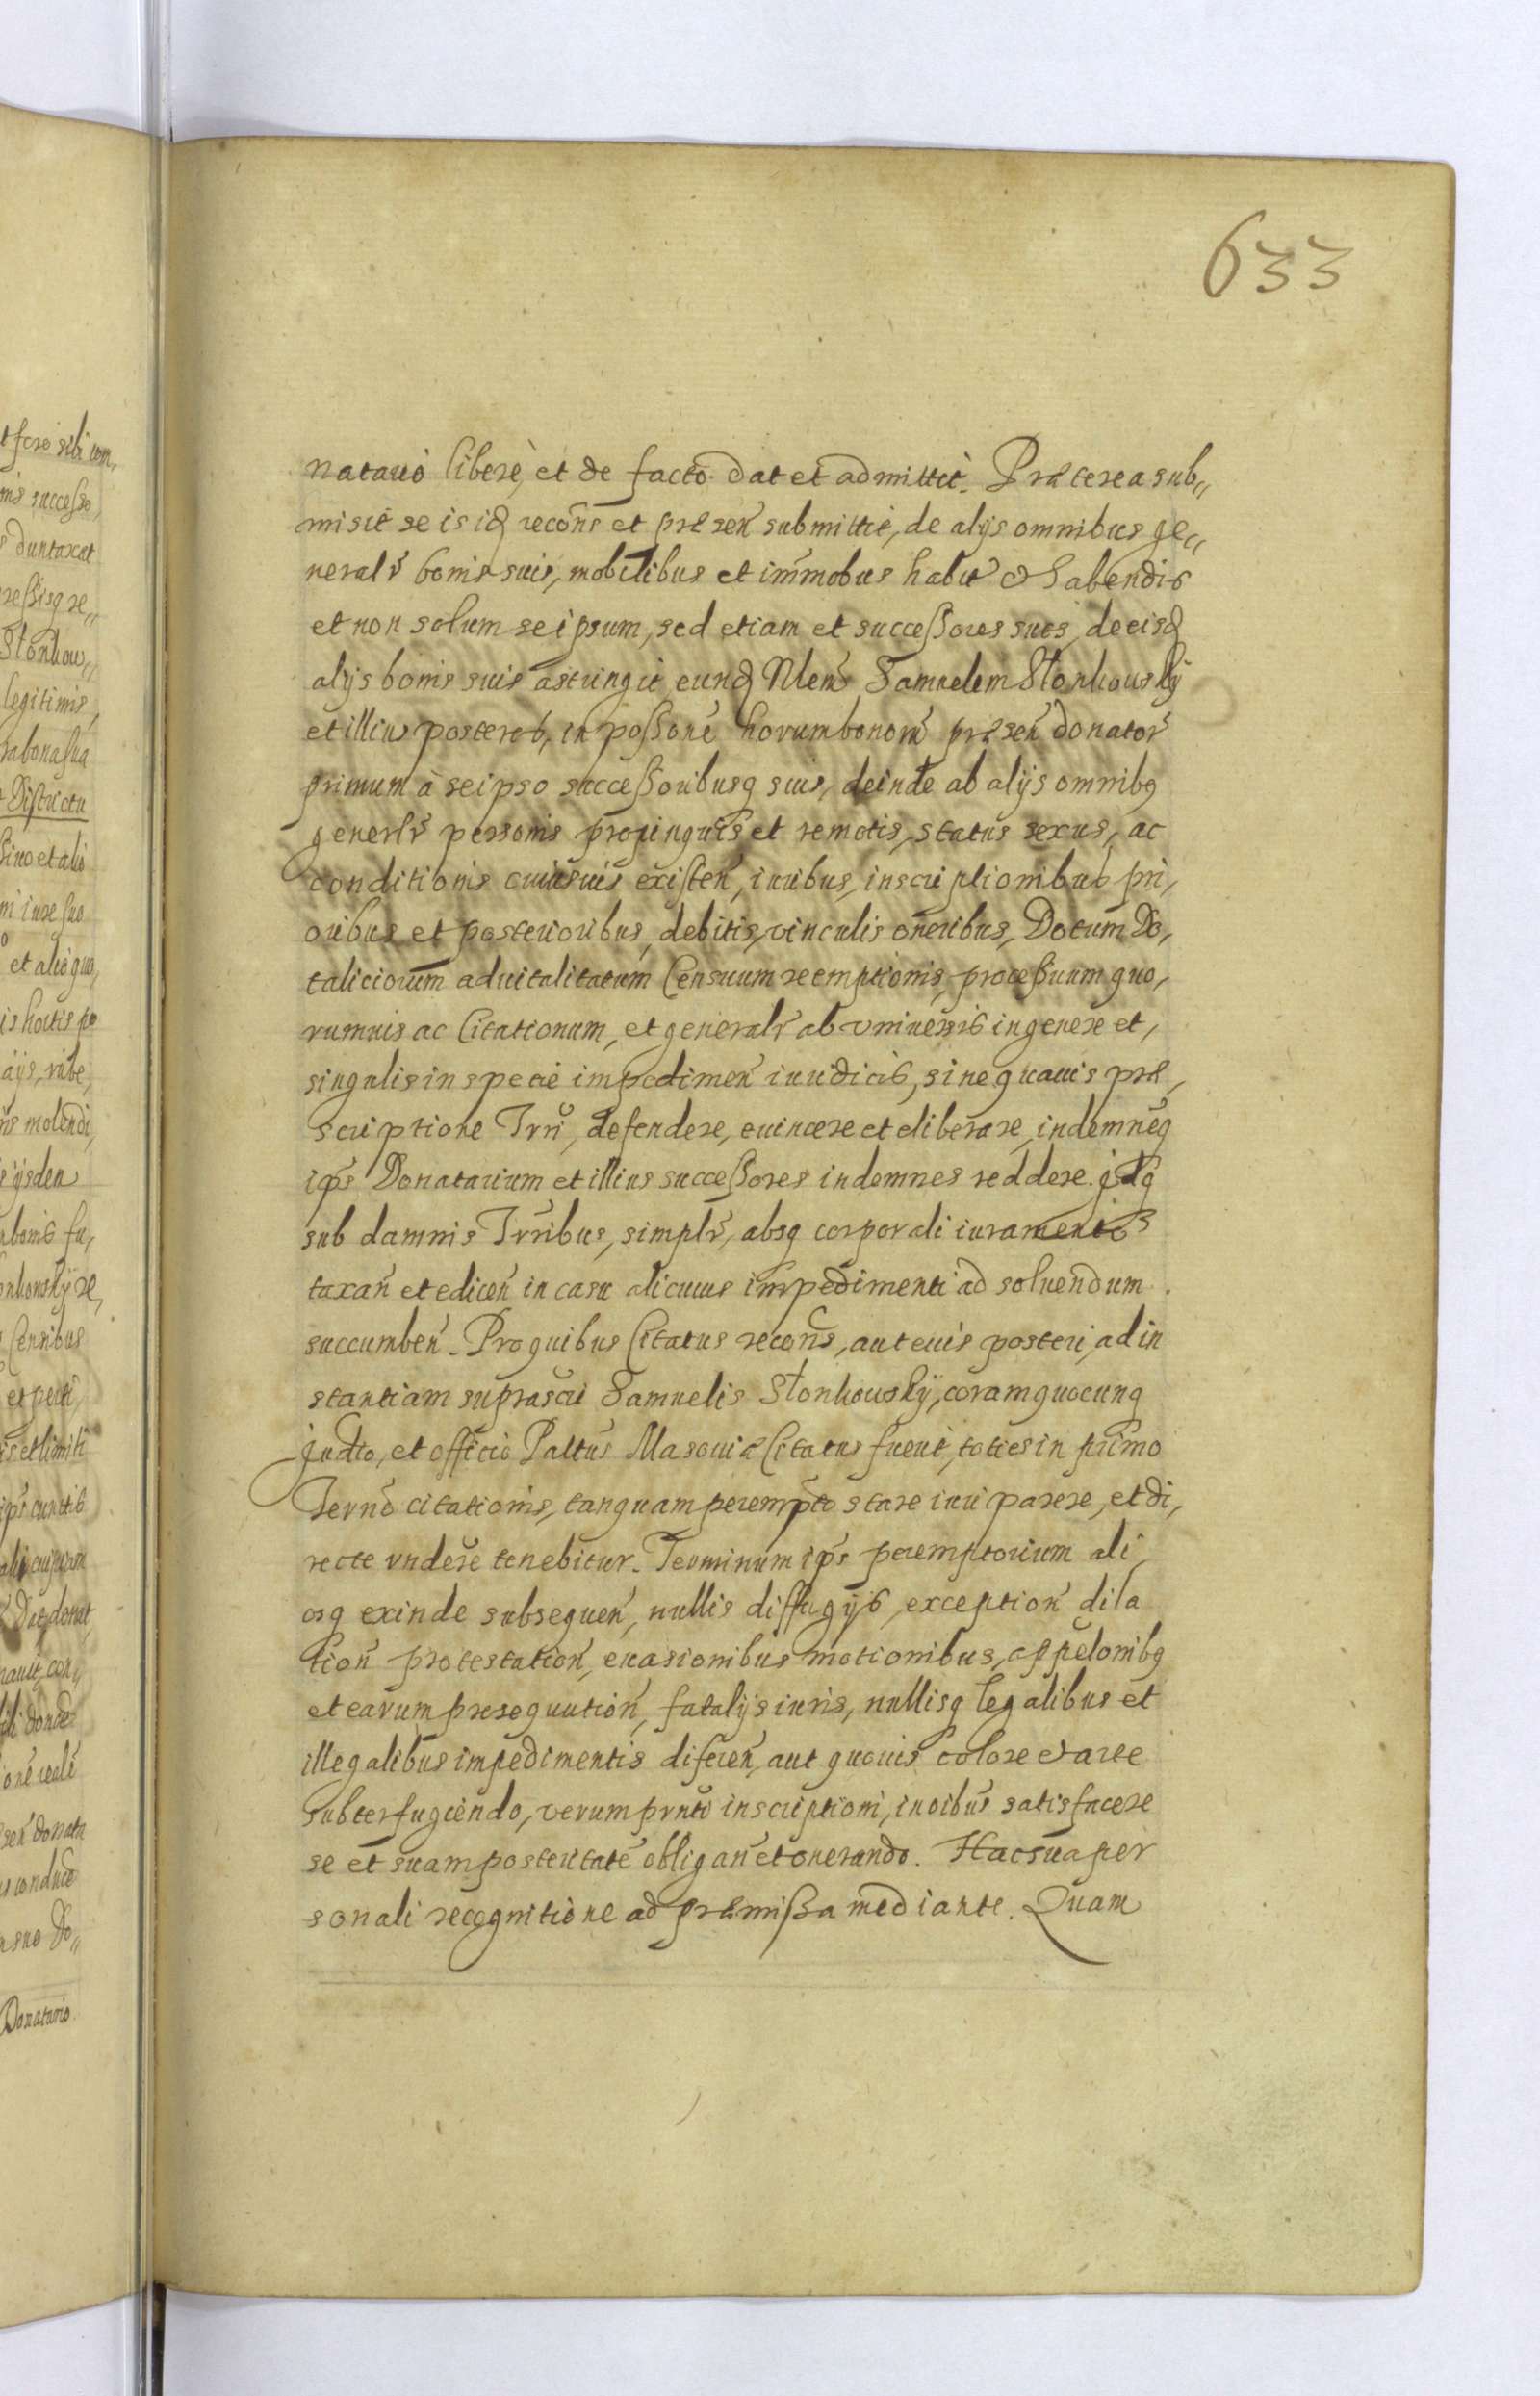 633
natario liberè, et de facto dat et admittit. Præterea sub„
misit se is idq recons et præsen submittit, de alijs omnibus ge„
neralr bonis suis, mobilibus et immobus habit et habendis
et non solum seipsum, sed etiam et successores suos, de eisq
alijs bonis suis astringit eundq Nlem Samuelem Słonkowsky
et illius posteros, in possone horum bonorum præsen donator
primum à seipso successoribusq suis, deinde ab alijs omnibq
generlr personis propinquis et remotis, status sexus, ac
conditionis cuiusuis existen, iuribus, inscriptionibus pri,
oribus et posterioribus, debitis, vinculis oneribus, Dotum Do,
taliciorum aduitalitatum Censuum reemptionis, processuum quo,
rumuis ac Citationum, et generalr ab vniuersis in genere et,
singulis in specie impedimen iuridicis, sine quauis præ,
scriptione Trri, defendere, euincere et eliberare, indemneq
ips Donatarium et illius successores indemnes reddere. idq
sub damnis Trribus, simplr, absq corporali iuramento
taxan et edicen in casu alicuius impedimenti ad soluendum
succumben. Pro quibus Citatus recons, aut euis posteri, ad in
stantiam suprascri Samuelis Słonkowsky, coram quocunq
Judto, et officio Paltus Masouiæ Citatus fuerit, toties in primo
Terno citationis, tanquam perempto stare iuri parere, et di,
recte rndere tenebitur. Terminum ips peremptorium ali
osq exinde subsequen, nullis diffugijs, exception dila
tion protestation, euasionibus motionibus, appelonibq
et earum prosequution, fatalijs iuris, nullisq legalibus et
illegalibus impedimentis diferen, aut quouis colore et arte
subterfugiendo, verum prnti inscriptioni, in oibus satisfacere
se et suam posteritate obligan et onerando. Hac sua per
sonali recognitione ad præmissa mediante. Quam